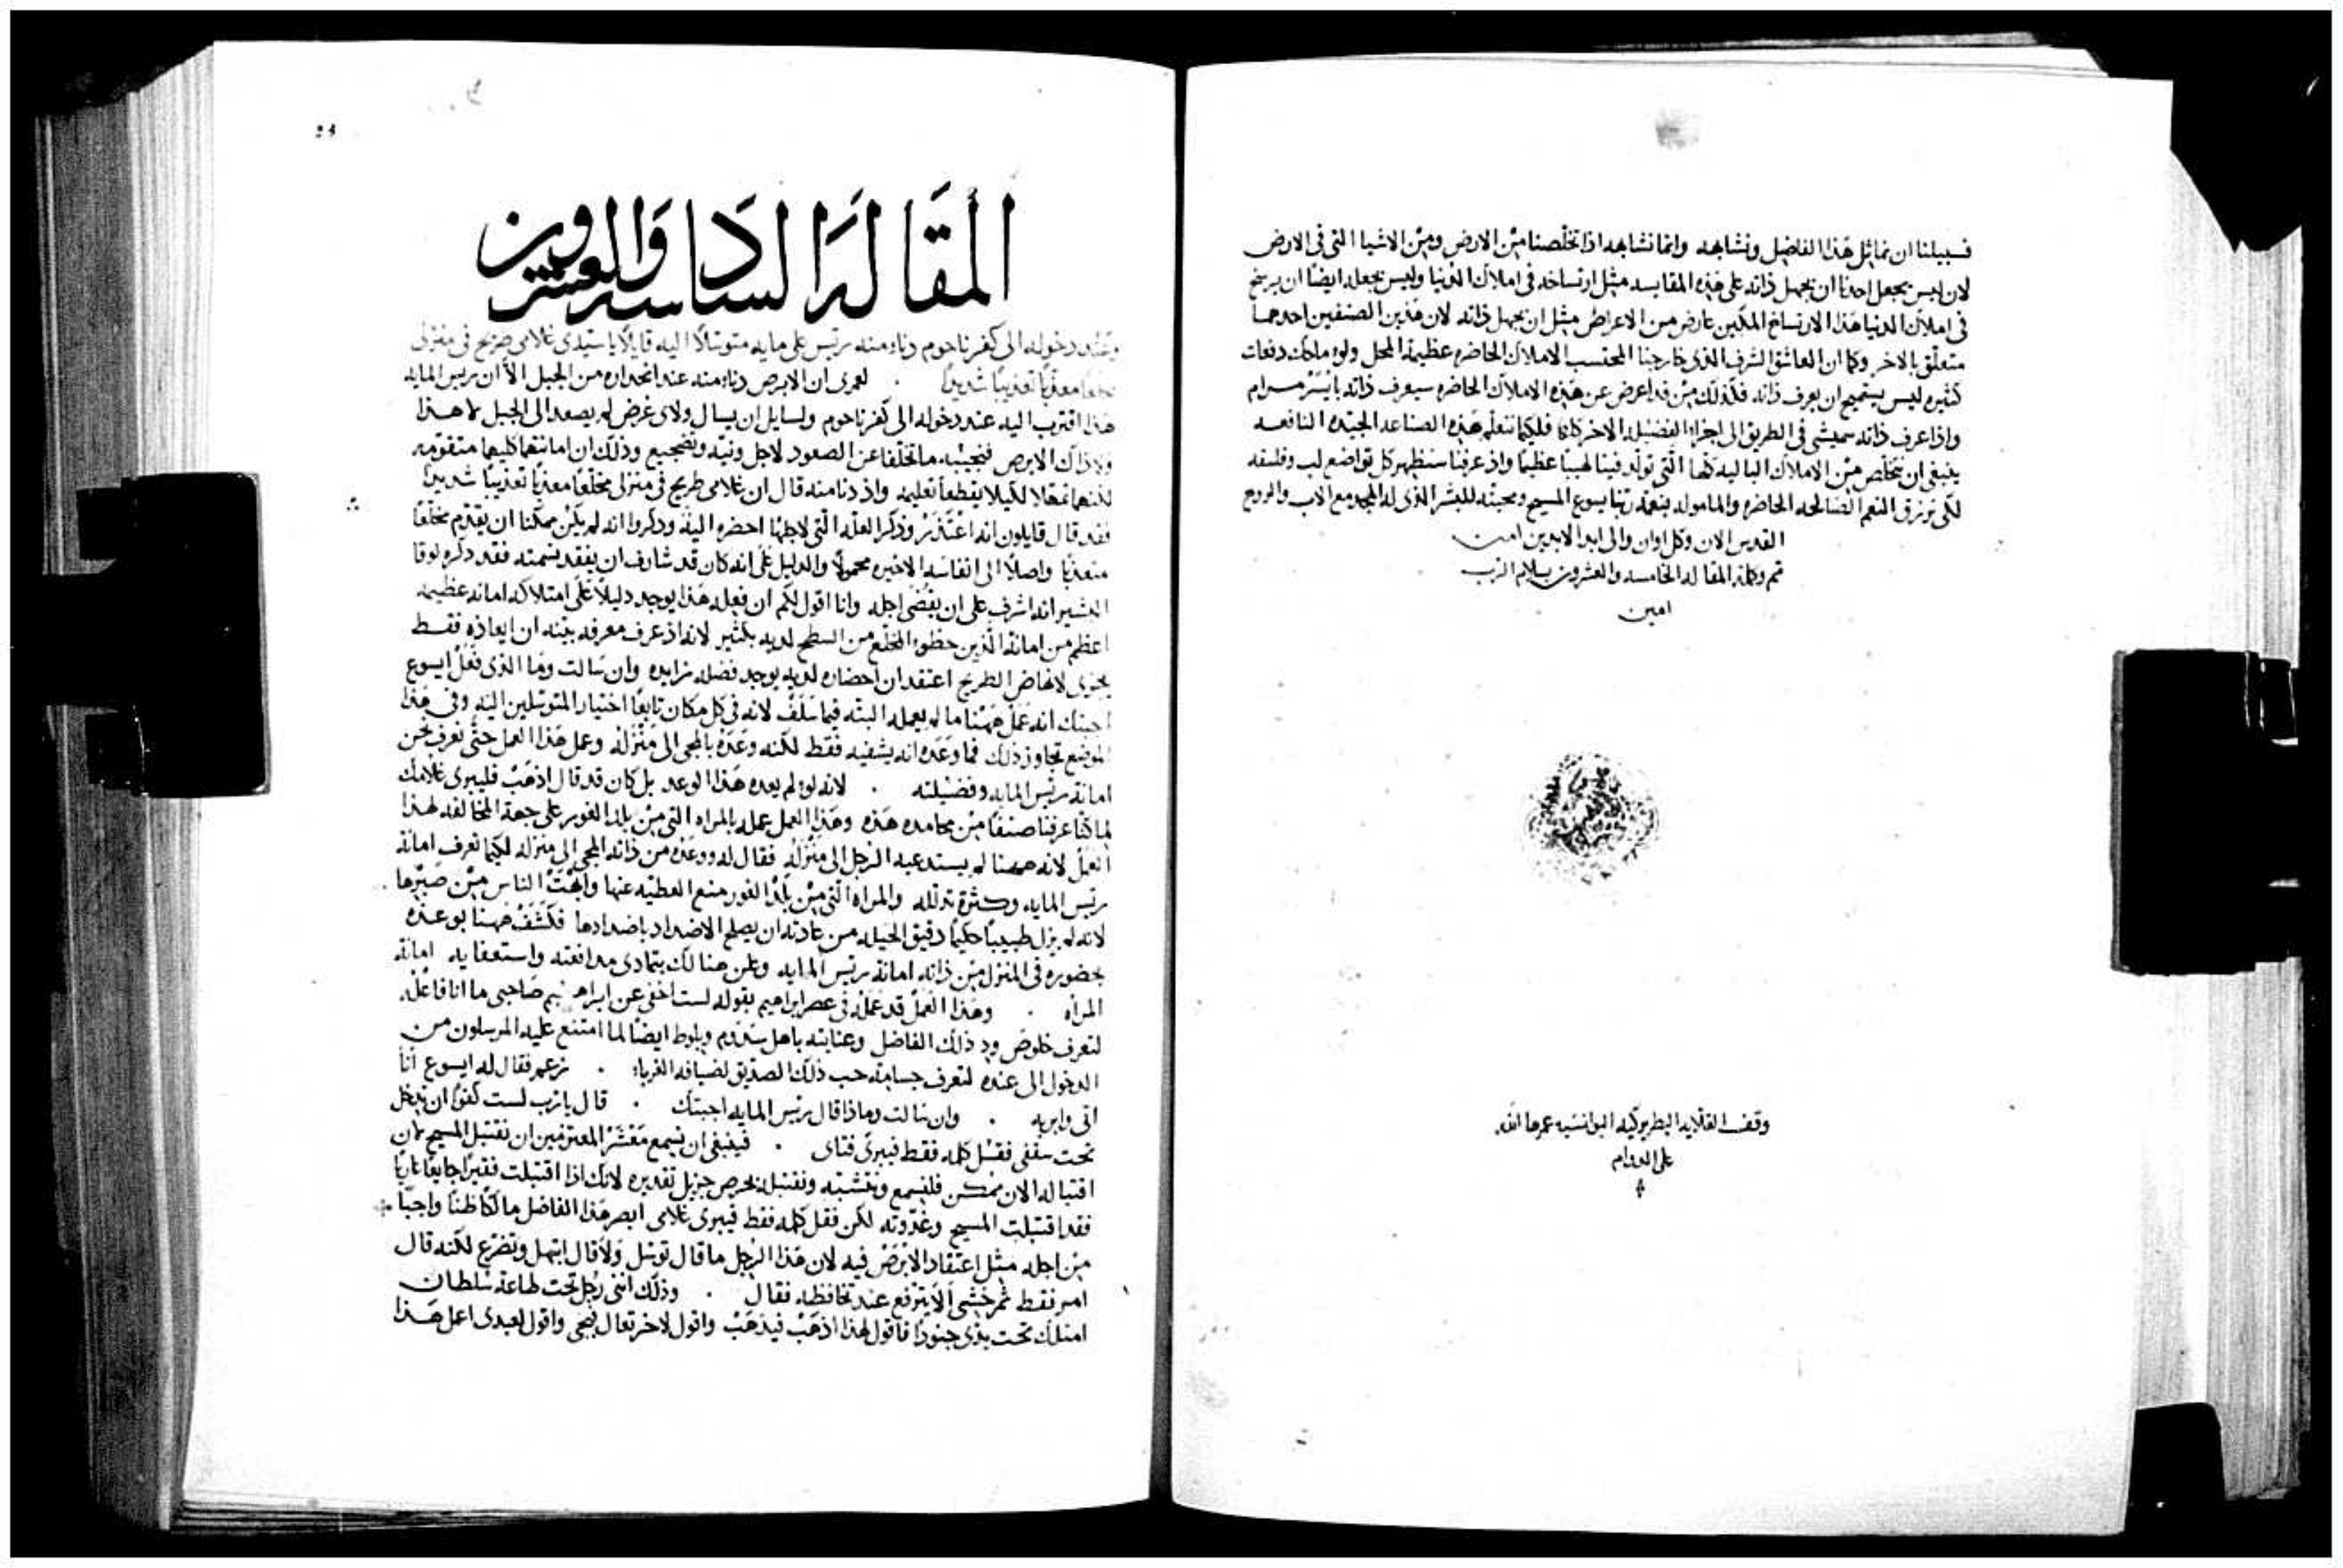 فسبيلنا ان نماثل هذا الفاضل ونشابهه وانما نشابهه اذا تخلصنا من الارض ومن الاشيا التى فى الارض
لان ليس يجعل احدنا ان يجهل ذاته على هذه المقايسه مثل ارتساخه فى املاك الدنيا وليس يجعله ايضًا ان يرسخ
فى املاك الدنيا هذا الارتساخ المكين عارض من الاعراض مثل ان يجهل ذاته لان هذين الصنفين احدهما
متعلق بالاخر وكما ان العاشق الشرف الذى خارجنا المحتسب الاملاك الحاضره عظيمة المحل ولو ماحك دفعات
كثيره ليس يستميح ان يعرف ذاته فكذلك من قد اعرض عن هذه الاملاك الحاضره سيعرف ذاته بايسر مرام
واذا عرف ذاته سميشى فى الطريق الى اجزاء الفضيله الاخر كلها فلكيما نتعلم هذه الصناعه الجيده النافعه
ينبغى ان نتخلص من الاملاك الباليه كلها التى تولد فينا لهيبًا عظيمًا واذ عرفنا سنظهر كل تواضع لب وفلسفه
لكى نرزق النعم الصالحه الحاضره والمامولة بنعمة ربنا يسوع المسيح ومحبته للبشر الذى له المجد مع الاب والروح
القدس الان وكل اوان والى ابد الابدين امين
تم وكملة المقاله الخامسه والعشرون بسلام الرب
امين
وقف القلايه البطريركيه اليوانسيه عمرها الله
على الدوام
المقَالَة السَادسه وَالعشرون
وعند دخوله الى كفرناحوم دناء منه رييس على مايه متوسّلاً اليه قايلاً يا سيّدى غلامى طريح فى منزلى
مخلعًا معذبًا تعذيبًا شديدًا . لعمرى ان الابرص دناء منه عند انحداره من الجبل الا ان رييس المايه
هذا اقترب اليه عند دخوله الى كفرناحوم ولسايل ان يسال ولاى غرض لم يصعد الى الجبل لا هذا
ولا ذاك الابرص فنجيبه ما تخلفا عن الصعود لاجل ونيه وتضجيع وذلك ان امانتهما كليهما متقومه
لكنهما تمهلا لكيلا يقطعا تعليمه واذ دنا منه قال ان غلامى طريح فى منزلى مخلعًا معذبًا تعذيبًا شديدًا
فقد قال قايلون انه اعتذر وذكر العله التى لاجلها احضره اليه وذكروا انه لم يكن ممكنا ان يقدم مخلعًا
متعذبًا واصلاً الى انفاسه الاخيره محمولاً والدليل على انه كان قد شارف ان يفقد نسمته فقد ذكره لوقا
البشير انه اشرف على ان يقضى اجله وانا اقول لكم ان فعله هذا يوجد دليلاً على امتلاكه امانه عظيمه
اعظم من امانة الذين حطوا المخلع من السطح لديه بكثير لانه اذ عرف معرفه بينه ان ايعازه فقط
يجزى لانهاض الطريح اعتقد ان احضاره لديه يوجد فضله زايده وان سالت وما الذى فعل ايسوع
اجبتك انه عَمل هَهنا ما لم يعمله البته فيما سَلفَ لانه فى كل مكان تابعًا اختيار المتوسّلين اليه وفى هذا
الموضع تجاوز ذلك فما وَعَده انه يشفيه فقط لكنه وعَده بالمجى الى منزله وعمل هذا العمل حتى نعرف نحن
امانة رييس المايه وفضيلته . لانه لو لم يعده هذا الوعد بل كان قد قال اذهب فليبرى غلامك
لما كنا عرفنا صنفًا من محامده هذه وهذا العمل عمله بالمراه التى من بلد الغور على جهة المخالفه لهذا
العمل لانه ههنا لم يستدعيه الرجل الى منزله فقال له ووعده من ذاته المجى الى منزله لكيما نعرف امانة
رييس المايه وكثرة تذلله والمراه التى من بلد الغور منع العطيه عنها وابهتَ الناس من صبرها
لانه لم يزل طبيبًا حكيمًا دقيق الحيله من عادته ان يصلح الاضداد باضدادها فكشف ههنا بوعده
بحضوره فى المنزل من ذاته امانة رييس المايه وعلن هنالك بتمادى مدافعته واستعفايه امانة
المراه . وهذا العمل قد عمله فى عصر ابراهيم بقوله لست اخفى عن ابراهيم صاحبى ما انا فاعله
لتعرف خلوص ود ذلك الفاضل وعنايته باهل سدوم وبلوط ايضًا لما امتنع عليه المرسلون من
الدخول الى عنده لتعرف جسامة حب ذلك الصديق لضيافه الغرباء . زعم فقال له ايسوع انا
اتى وابريه . وان سالت وماذا قال رييس المايه اجبتك . قال يا رب لست كفوًا ان تدخل
تحت سقفى فقل كلمه فقط فيبرى فتاى . فينبغى ان نسمع مَعْشَر المعتزمين ان نقتبل المسيح لان
اقتباله الان ممكن فلنسمع ونغتشبه ونقتبله بحرص جزيل تقديره لانك اذا اقتبلت فقيرًا جايعًا عاريًا
فقد اقتبلت المسيح وغذوته لكن فقل كلمه فقط فيبرى غلامى ابصر هذا الفاضل مالكًا ظنًا واجبًا
من اجله مثل اعتقاد الابرص فيه لان هذا الرجل ما قال توسل ولا قال ابتهل وتضرع لكنه قال
امر فقط ثم خشى الا يترفع عند تحافظه فقال . وذلك اننى رجل تحت طاعة سلطان
امتلك تحت يدى جنودًا فاقول لهذا اذهَب فيذهَب واقول لاخر تعال فيجى واقول لعبدى اعمل هذا